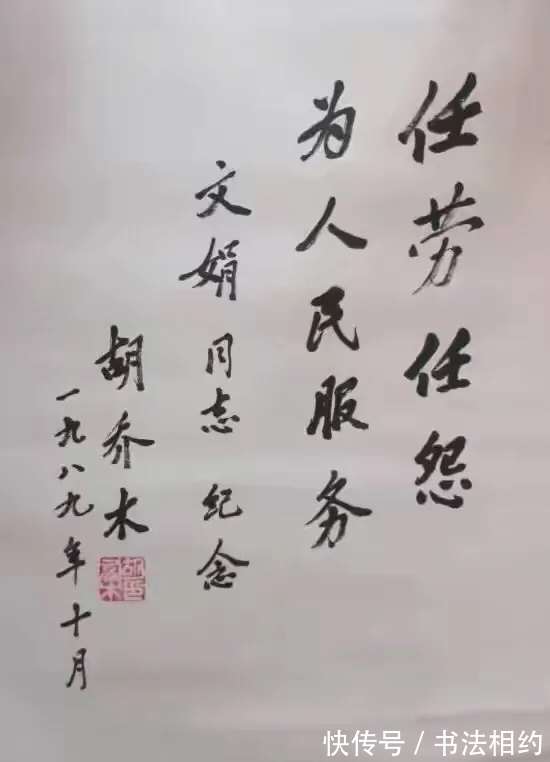 任劳任怨
为人民服务
文娟同志纪念
胡乔木
一九八九年十月
快传号/书法相约